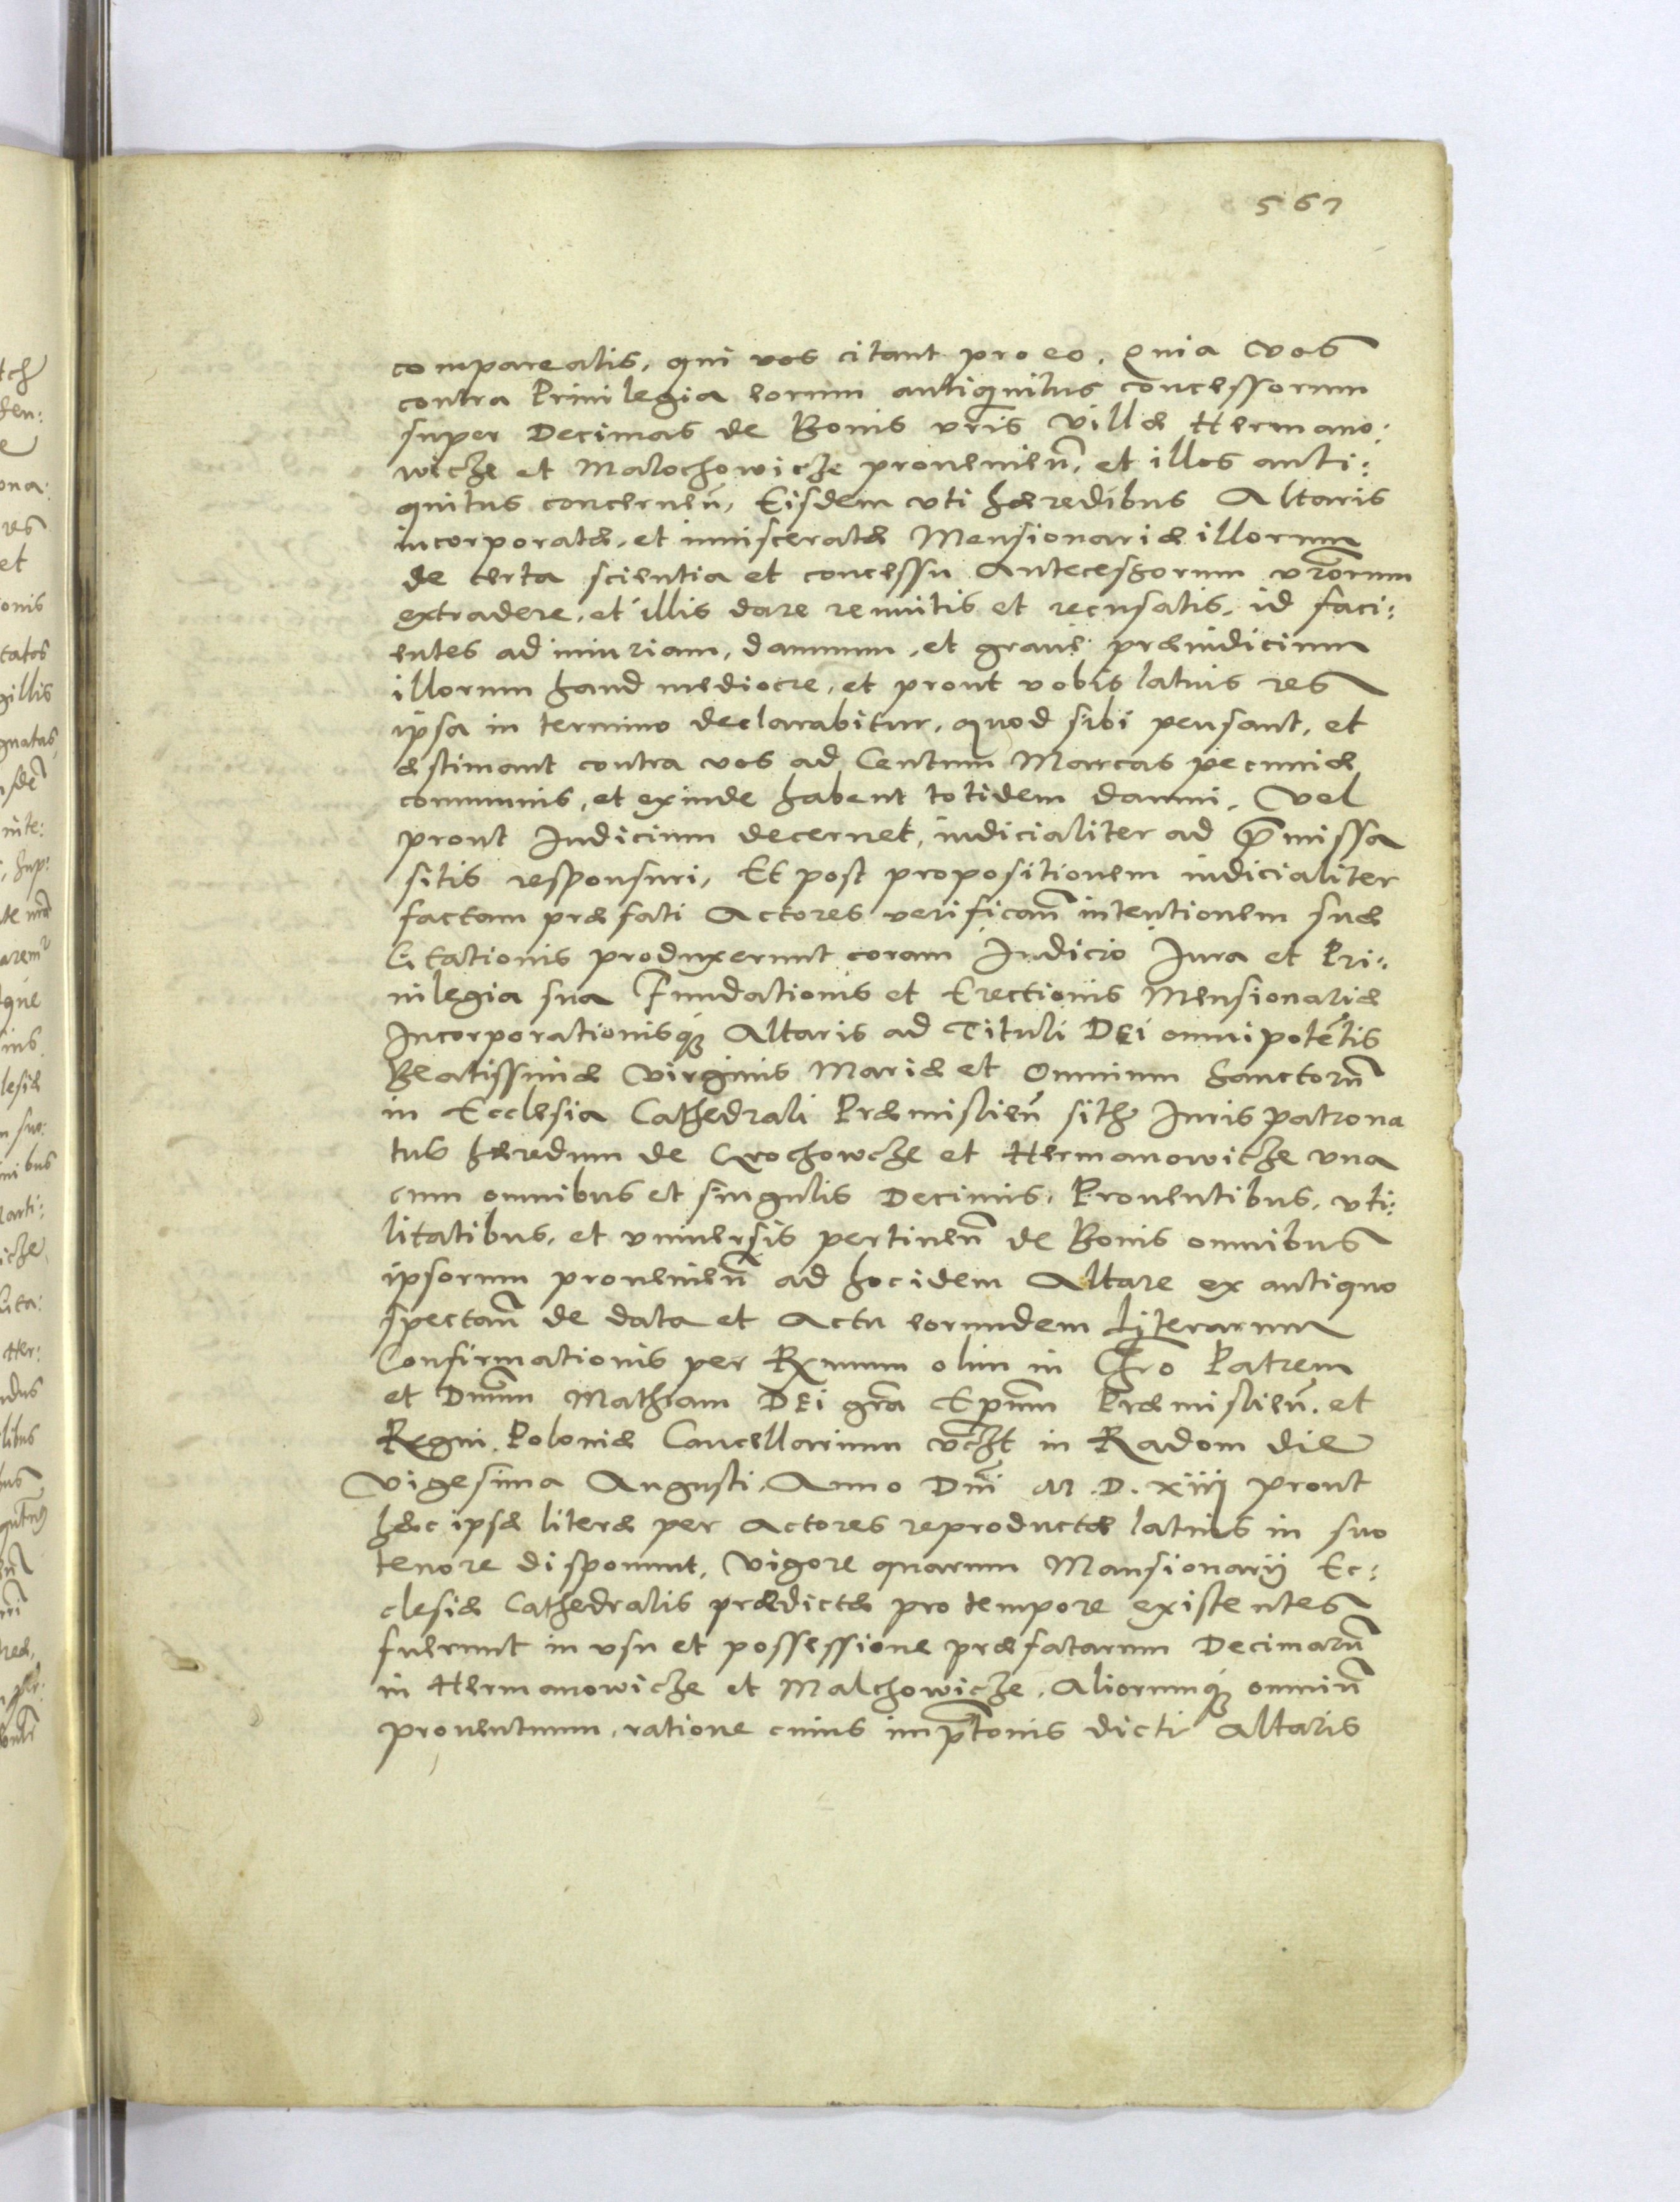 567
compareatis, qui vos citant pro eo. Quia Vos
contra Priuilegia eorum antiquitus concessorum
super Decimas de Bonis vr̃is Villæ Hermano:
wicze et Malochowicze prouenieñ, et illos anti:
quitus concerneñ, Eisdem vti hæredibus Altaris
incorporatæ, et inuisceratæ Mensionariæ illorum
de certa scientia et concessu Antecessorum vr̃orum
extradere, et illis dare renuitis et recusatis, id faci:
entes ad iniuriam, damnum, et graue præiudicium
illorum haud mediocre, et prout vobis latius res
ipsa in termino declarabitur, quod sibi pensant, et
æstimant contra vos ad Centum Marcas pecuniæ
communis, et exinde habent totidem damni, Vel
prout Iudicium decernet, iudicialiter ad p̃missa
sitis responsuri, Et post propositionem iudicialiter
factam præfati Actores verificañ intentionem suæ
Citationis produxerunt coram Iudicio Iura et Pri:
uilegia sua Fundationis et Erectionis Mensionariæ
Incorporationisq́ꝫ Altaris ad Tituli DEi omnipotẽtis
Beatissimæ Virginis Mariæ et Omnium Sanctorũ
in Ecclesia Cathedrali Præmislieñ siti Iuris patrona
tus hæredum de Crochowcze et Hermanowicze vna
cum omnibus et singulis Decimis, Prouentibus, vti:
litatibus, et vniuersis pertineñ de Bonis omnibus
ipsorum prouenieñ ad hocidem Altare ex antiquo
spectañ de data et Actu eorundem Literarum
Confirmationis per Rx̃mum olim in Chr̃o Patrem
et Dñum Mathiam DEi gr̃a Ep̃um Præmislieñ. et
Regni Poloniæ Cancellarium vczt in Radom die
Vigesima Augusti, Anno Dñi M.D.xiiij prout
hæc ipsæ literæ per Actores reproductæ latius in suo
tenore disponunt, Vigore quarum Mansionarij Ec:
clesiæ Cathedralis prædictæ pro tempore existentes
fuerunt in vsu et possessione præfatarum Decimarũ
in Hermanowicze et Malchowicze, Aliorumq́ꝫ omniũ
prouentuum, ratione cuius imp̃tonis dicti Altaris